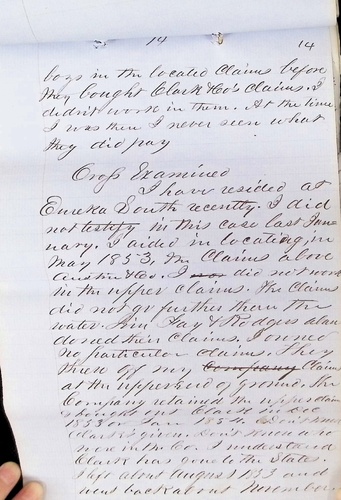 14
14
boys in the located Claims before
they bought Clark & Co's Claims. I
didn't work in them. At the time
I was there I never seen what
they did pay
Cross Examined
I have resided at
Eureka South recently. I did
not testify in this case last Jan
uary. I aided in locating, in
May 1853, the Claims above
Austin & Co. I did not work
in the upper claims. The Claims
did not go further than the
water. Jim Fay & Rodgers aban
doned their Claims. I owned
no particular claims. They
threw off my Company Claims
at the upper end of ground. The
Company retained the upper claims
bought out Clark in Dec
1853 or Jan 1854.
Clark's given.
now in the Co. I understand
Clark has gone to the States.
I left about August 1853 and
went back about November